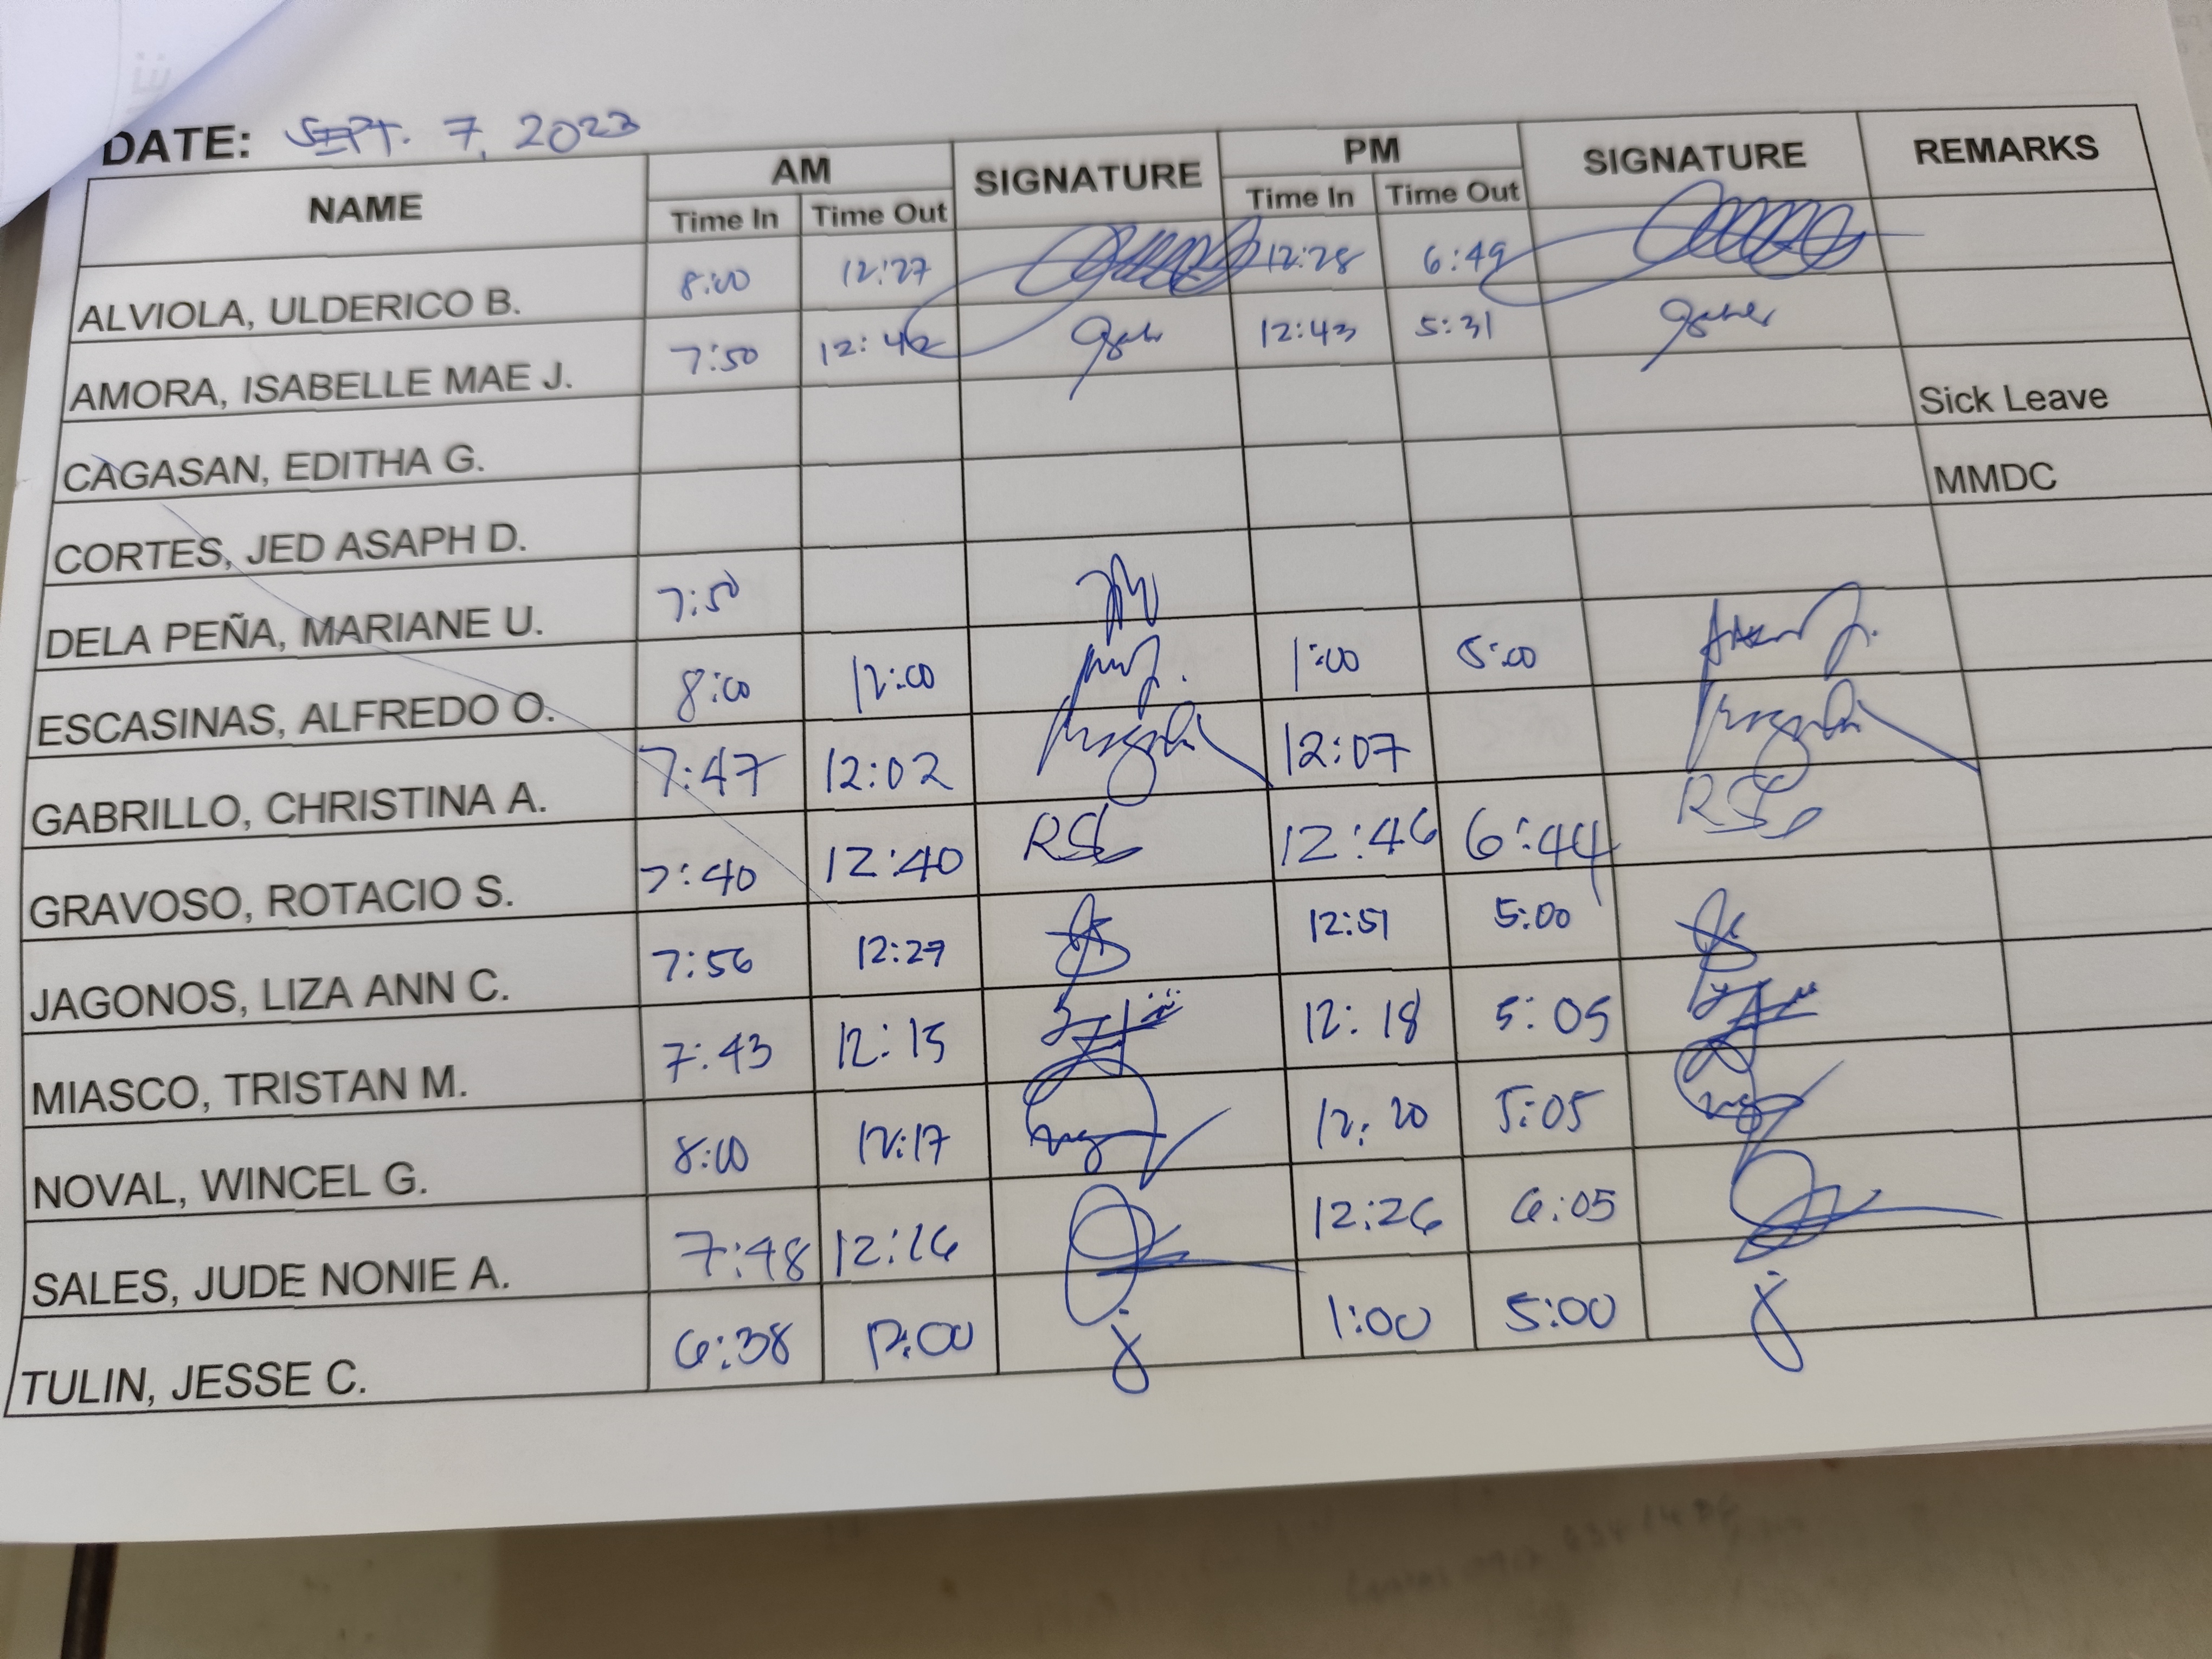 DATE: SEPT. 7, 2023
NAME AM SIGNATURE PM SIGNATURE REMARKS
Time In Time Out Time In Time Out
ALVIOLA, ULDERICO B. 8:00 12:27 12:28 6:49
AMORA, ISABELLE MAE J. 7:50 12:42 12:43 5:31
CAGASAN, EDITHA G. Sick Leave
CORTES, JED ASAPH D. MMDC
DELA PEÑA, MARIANE U. 7:50
ESCASINAS, ALFREDO O. 8:00 12:00 1:00 5:00
GABRILLO, CHRISTINA A. 7:47 12:02 12:07
GRAVOSO, ROTACIO S. 7:40 12:40 RSG 12:46 6:44 RSG
JAGONOS, LIZA ANN C. 7:56 12:29 12:51 5:00
MIASCO, TRISTAN M. 7:43 12:15 12:18 5:05
NOVAL, WINCEL G. 8:00 12:17 12:20 5:05
SALES, JUDE NONIE A. 7:48 12:26 12:26 6:05
TULIN, JESSE C. 6:38 12:00 1:00 5:00